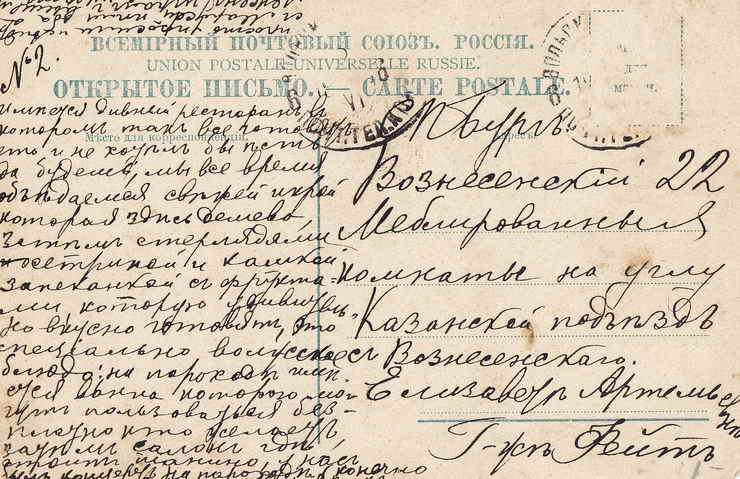 № 2.
ВСЕМІРНЫЙ ПОЧТОВЫЙ СОЮЗЪ. РОССІЯ.
UNION POSTALE UNIVERSELLE RUSSIE.
ОТКРЫТОЕ ПИСЬМО. — CARTE POSTALE.
Мѣсто для корреспонденціи.
имѣется дивный ресторанъ въ
которомъ такъ все
ѣто и не хочешь
да будешь, мы все время
объѣдаемся свѣжей икрой
которая здѣсь дешева,
Затѣмъ стерлядями,
осетриной и
запеканкой съ фрукта-
ми, которую удивитель-
но вкусно готовятъ, это
спеціально волжское
блюдо; на пароходѣ имѣ-
ется ванна которою мо-
гутъ пользоваться без-
платно кто желаетъ
затѣмъ салонъ гдѣ
стоитъ піанино, у насъ
былъ концертъ на пароходѣ, конечно
П-бургъ
Вознесенскій 22
Меблированныя
комнаты на углу
Казанской подъѣздъ
съ Вознесенскаго.
Елизаветѣ Артемьевнѣ
Г-жѣ Фейтъ